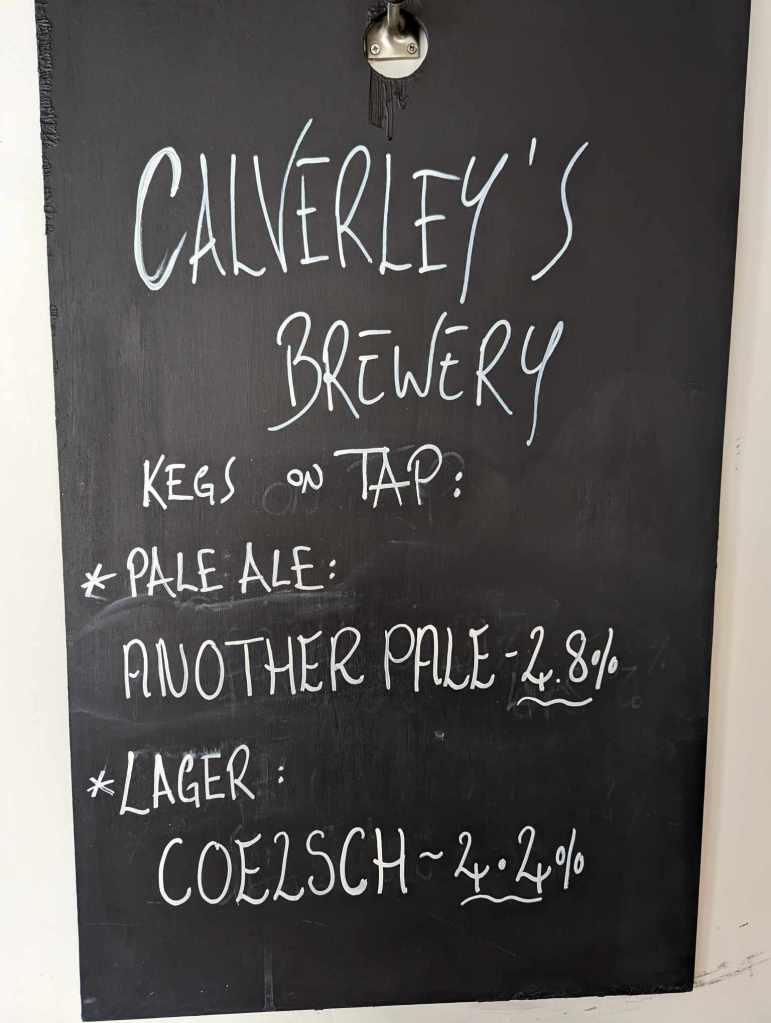 CALVERLEY'S
BREWERY
KEGS ON TAP:
* PALE ALE:
ANOTHER PALE - 4.8%
* LAGER:
COELSCH ~ 4.4%